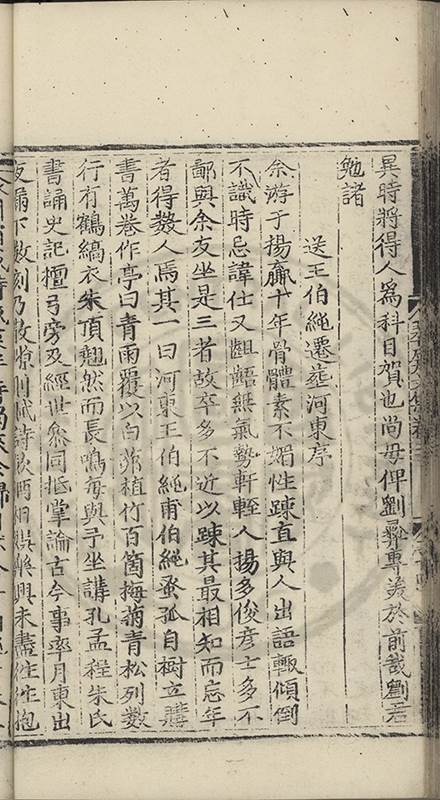 異時將得人爲科目賀也尚毋俾劉彞專美於前哉劉君
勉諸
送王伯䋲遷葬河東序
余游于揚廠十年骨體素不媚性踈直與人出語輒傾倒
不識時忌諱仕又齟齬無氣勢軒輊人揚多俊彦士多不
鄙與余友坐是三者故卒多不近以踈其最相知而忘年
者得數人焉其一曰河東王伯䋲甫伯䋲蚤孤自樹立購
書萬卷作亭曰青雨覆以白茆植竹百箇梅菊青松列數
行有鶴縞衣朱頂翹然而長鳴每與予坐講孔孟程朱氏
書誦史記檀弓旁及經世參同抵掌論古今事率月東出
夜漏下數刻乃
興未盡往往抱